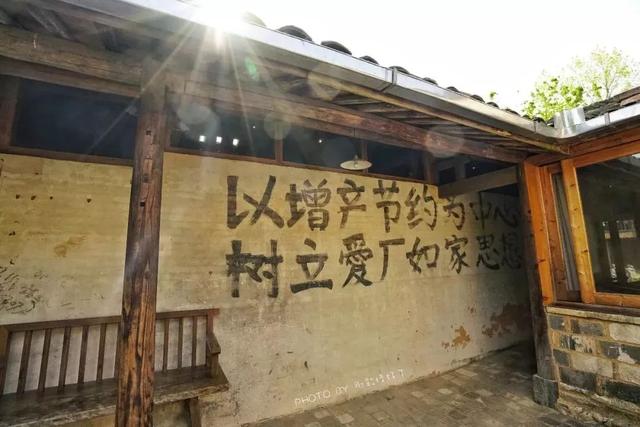 以增产节约为中心
树立爱厂如家思想
PHOTO BY